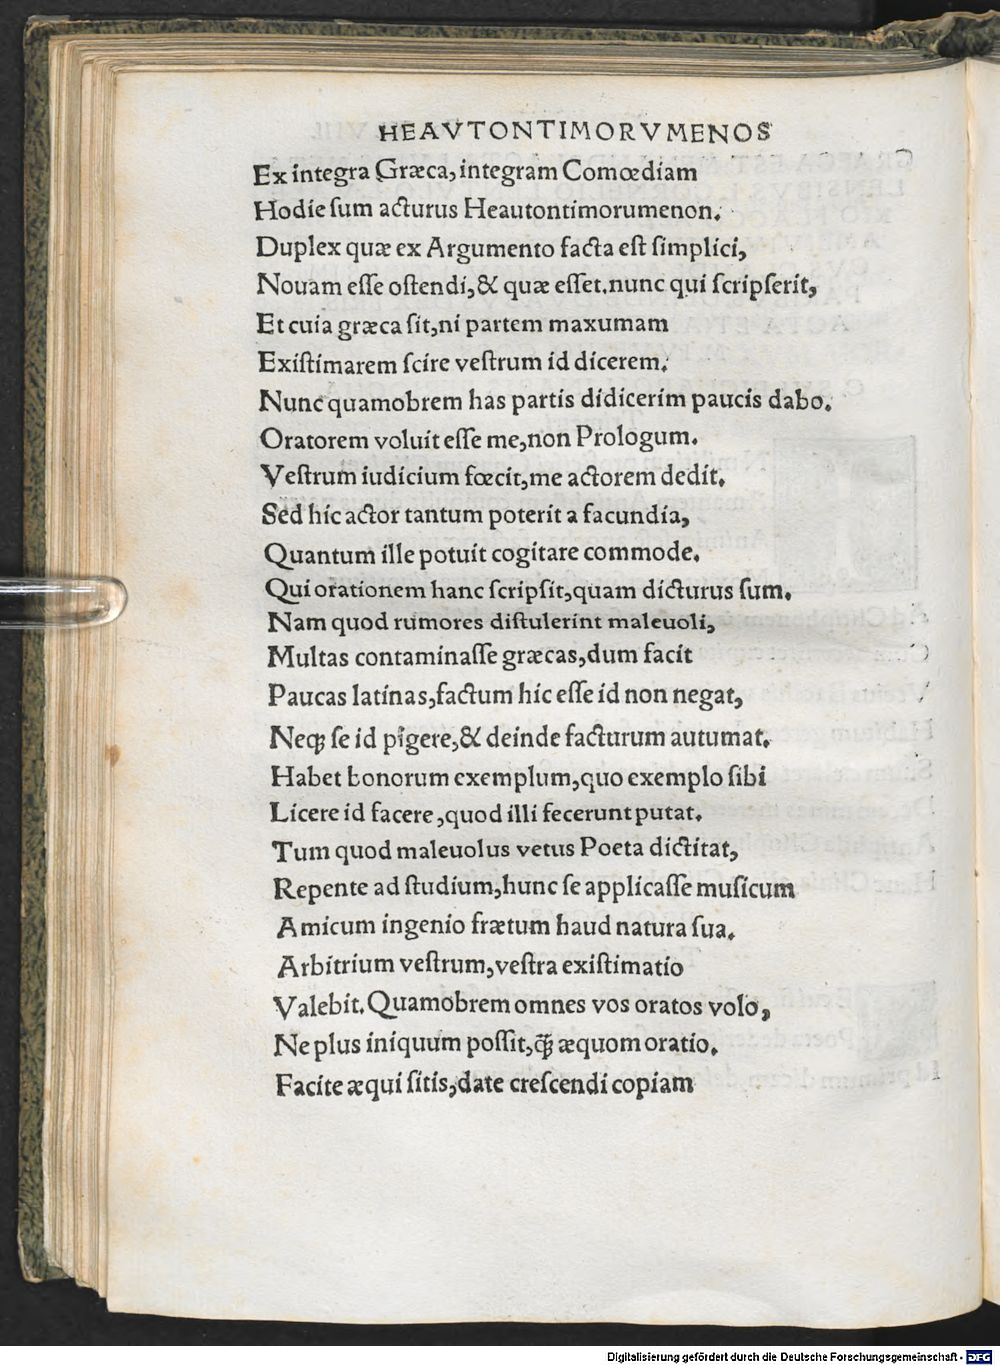 HEAVTONTIMORVMENOS
Ex integra Græca, integram Comœdiam
Hodie ſum acturus Heautontimorumenon.
Duplex quæ ex Argumento facta eſt ſimplici,
Nouam eſſe oſtendi, & quæ eſſet. nunc qui ſcripſerit,
Et cuia græca ſit, ni partem maxumam
Exiſtimarem ſcire veſtrum id dicerem.
Nunc quamobrem has partis didicerim paucis dabo.
Oratorem voluit eſſe me, non Prologum.
Veſtrum iudicium fœcit, me actorem dedit.
Sed hic actor tantum poterit a facundia,
Quantum ille potuit cogitare commode.
Qui orationem hanc ſcripſit, quam dicturus ſum.
Nam quod rumores diſtulerint maleuoli,
Multas contaminaſſe græcas, dum facit
Paucas latinas, factum hic eſſe id non negat,
Neqꝫ ſe id pigere, & deinde facturum autumat.
Habet bonorum exemplum, quo exemplo ſibi
Licere id facere, quod illi fecerunt putat.
Tum quod maleuolus vetus Poeta dictitat,
Repente ad ſtudium, hunc ſe applicaſſe muſicum
Amicum ingenio frætum haud natura ſua.
Arbitrium veſtrum, veſtra exiſtimatio
Valebit. Quamobrem omnes vos oratos volo,
Ne plus iniquum poſſit, q̃ꝫ æquom oratio.
Facite æqui ſitis, date creſcendi copiam
Digitalisierung gefördert durch die Deutsche Forschungsgemeinschaft - DFG